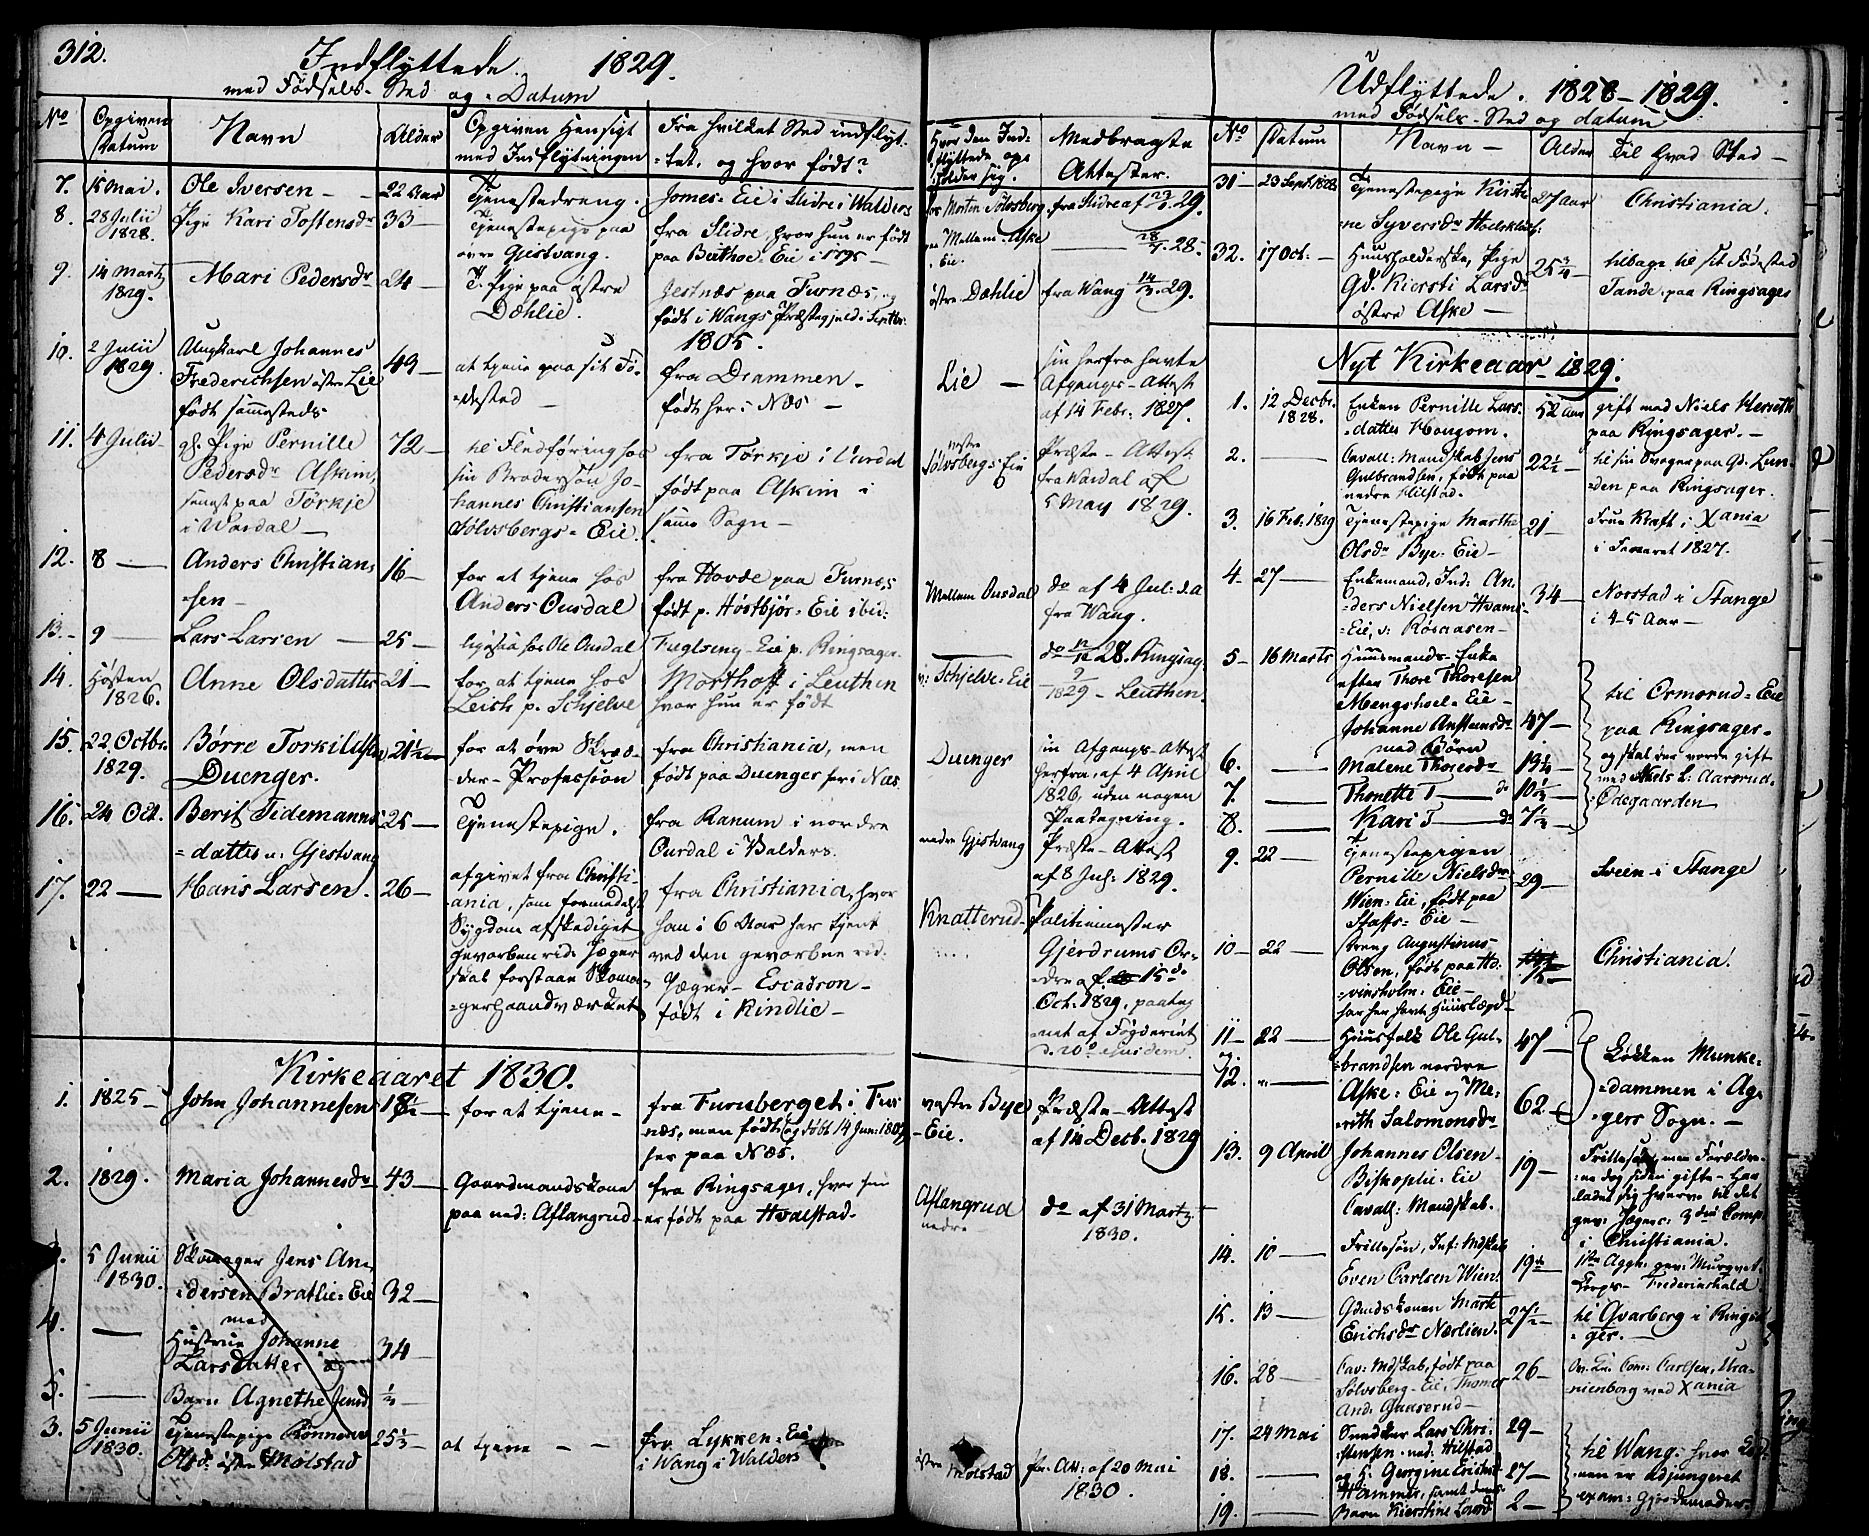 312.
Indflyttede 1829.
med Fødsels-Sted og Datum
No
Opgiven Datum
Navn
Alder
Opgiven Hensigt med Indflytningen
Fra hvilket Sted indflyttet, og hvor født?
Hvor den Indflyttede opholder sig.
Medbragte Attester.
7. 15 Mai. Ole Iversen — 22 Aar Tjenestedreng. Jomes-Eie i Slidre i Walders Morten Sølvsberg fra Slidre af 29.
8. 28 Julii 1828. Pige Kari Tostensdr 33 — Tjenestepige paa øvre Gjestvang. fra Slidre, hvor hun er født paa Eie i 1795 — Mellem Aske Eie. — 28.
9. 14 Marts 1829. Mari Pedersdr 24 — T. Pige paa østre Dæhlie. Jestnæs paa Furnæs, og født i Wangs Præstegjeld i Septbr. 1805. østre Dæhlie fra Wang 14/3. 29.
10. 2 Julii 1829. Ungkarl Johannes Frederichsen østre Lie født sammesteds 49 — at tjene paa sit Fødested — fra Drammen — født her i Næs — Lie — sin herfra havte Afgangs-Attest af 14 Febr. 1827.
11. 4 Julii — Pige Pernille Pedersdr Askim, senest paa Tørkje i Wardal — 72 — til Flødføring hos sin Brodersøn Johannes Christiansen Sølvsbergs-Eie. fra Tørkje i Vardal født paa Askim i samme Sogn — Sølvsbergs Eie Præste-Attest fra Wardal af 5 May 1829.
12. 8 — Anders Christiansen — 16 — for at tjene hos Anders Ousdal fra Hovde paa Furnæs født p. Høstbjør-Eie ibid: Mellem Ousdal do af 4 Jul: d.a fra Wang.
13. 9 — Lars Larsen — 25 — ligesaa hos Ole Ousdal Fuglseng-Eie p. Ringsager. — do 28. Ringsag
14. Høsten 1826. Anne Olsdatter 21 — for at tjene hos Leish p. Schjelve Morthoff i Leuthen hvor hun er født Schjelve-Eie 9/1829 — Leuthen
15. 22 Octbr. 1829. Børre Torkildsen Duenger. 21½ for at øve Skræder-Profession fra Christiania, men født paa Duenger her i Næs Duenger sin Afgangs-Attest herfra, af 4 April 1826, uden nogen Paategning.
16. 24 Oct. Berit Tidemannsdatter n: Gjestvang 25 — Tjenestepige. fra Ranum i nordre Ourdal i Valders. nedre Gjestvang Præste-Attest af 8 Juli: 1829.
17. 22 — Hans Larsen. 26 — afgivet fra Christiania, som formedelst Sygdom afskediget hvorben rid: Jæger skal forstaae Skomagerhaandværcket fra Christiania, hvor han i 6 Aar har tjent ved den gevorbne rid: Jæger-Escadron — født i Rindlie — Knatterud Politiemester Gjerdrums Ordre af 15de Oct. 1829, paategnet af Fogderiet d. 20de ejusdem.
Kirkeaaret 1830.
1. 1825 — John Johannesen 18½ — for at tjene — fra Furuberget i Furnæs, men født (og døbt 14 Jun: 1807) her paa Næs. vestre Bye-Eie. Præste-Attest af 14 Decb. 1829
2. 1829. Maria Johannesdr 43 — Gaardmandskone paa ned: Aflangrud — fra Ringsager, hvor hun er født paa Hvalstad. Aflangrud nedre do af 31 Marts 1830.
3. 5 Junii 1830. Skomager Jens Andersen Bratlie-Eie 32 —
4. — med Hustrue Johanne Larsdatter 34 —
5. — Barn Agnethe Jensd ½ —
3. 5 Junii 1830. Tjenestepige Rønnau Olsd: østre Molstad 25⅓ — at tjene — — fra Lykken-Eie i Wang i Walders østre Molstad Att: af 20 Mai 1830.
Udflyttede. 1828-1829.
med Fødsels-Sted og datum
No
Datum
Navn —
Alder
Til Hvad Sted —
31 — 23 Sept 1828 Tjenestepige Kirstine Syversdr 27 Aar Christiania.
32. 17 Oct. — Huusholderske, Pige Gd. Kiersti Larsdr østre Aske — 25¾ — tilbage til sit Fødested Tande paa Ringsager
Nyt Kirkeaar 1829.
1. 12 Decbr. 1828. Enken Pernille Larsdatter Hougom. 52 Aar gift med Niels paa Ringsager. —
2. — Cavall: Mandskab Jens Gulbrandsen, født paa nedre Hilstad. 22½ — til sin Svoger paa Gd. Lunden paa Ringsager.
3. 16 Feb. 1829 Tjenestepige Marthe Olsdr Bye-Eie — 21 — Frue Kraft i Xania i 1827.
4 — 27 — Enkemand, Ind: Anders Nielsen Hvams-Eie, v: Rosaasen — 34 — Norstad i Stange i 4-5 Aar —
5 — 16 Marts Huusmands-Enke efter Thore Thoresen Mengshoel-Eie — Johanne Anstensdr 47 — til Ormsrud-Eie paa Ringsager — og skal der vorde gift med Niels L: Aarsrud-Ødegaarden
med Børn
6. — Malene Thoresdr 13¼ —
7. — Thonette T — do 10⅓ —
8. — Kari T — do 7⅓ —
9. 22 — Tjenestepigen Pernille Nielsdr Wien-Eie, født paa Staffs-Eie — 29 — Sveen i Stange
10 — 22 — Dreng Augustinus Olsen, født paa Hedvinsholm-Eie — har her havt Huuslægd — 15 — Christiania.
11 — 22 — Huusfolk Ole Gulbrandsen nordre 47 — Løkken Munkedammen i Aggers Sogn. —
og 12. " — Aske-Eie og Merith Salomonsdr 62 —
13. 9 April Johannes Olsen — Biskoplie-Eie Cavall: Mandskab. 19 — Frillesøn, men Forældrene dog siden gifte — har ladet sig hverve til det gev: Jægerc: 3die Comp. i Christiania.
14. 10 — Frillesøn, Inf: Mdskab Even Carlsen Wien: 19 — 1ste Aggh: gev: Musqvet. Corps — Frederikshald.
15. 13 — Gdmdskonen Marte Erichsdr Nærlien. 27½ — til Qvarberg i Ringsager. —
16. 28 — Cav: Mdskab, født paa Sølvsberg-Eie, Thomas And: Gaaserud — 26 — Carlsen, Uranienborg ved Xania
17. 24 Mai Snedker Lars Christensen ned: Hilstad 29 — til Wang: hvor Enken er adjungeret exam: Gjordemoder
18. — og H. Georgine Erichsdr Hammer, samt deres 27 —
19. — Barn Kierstine Larsd 2 —